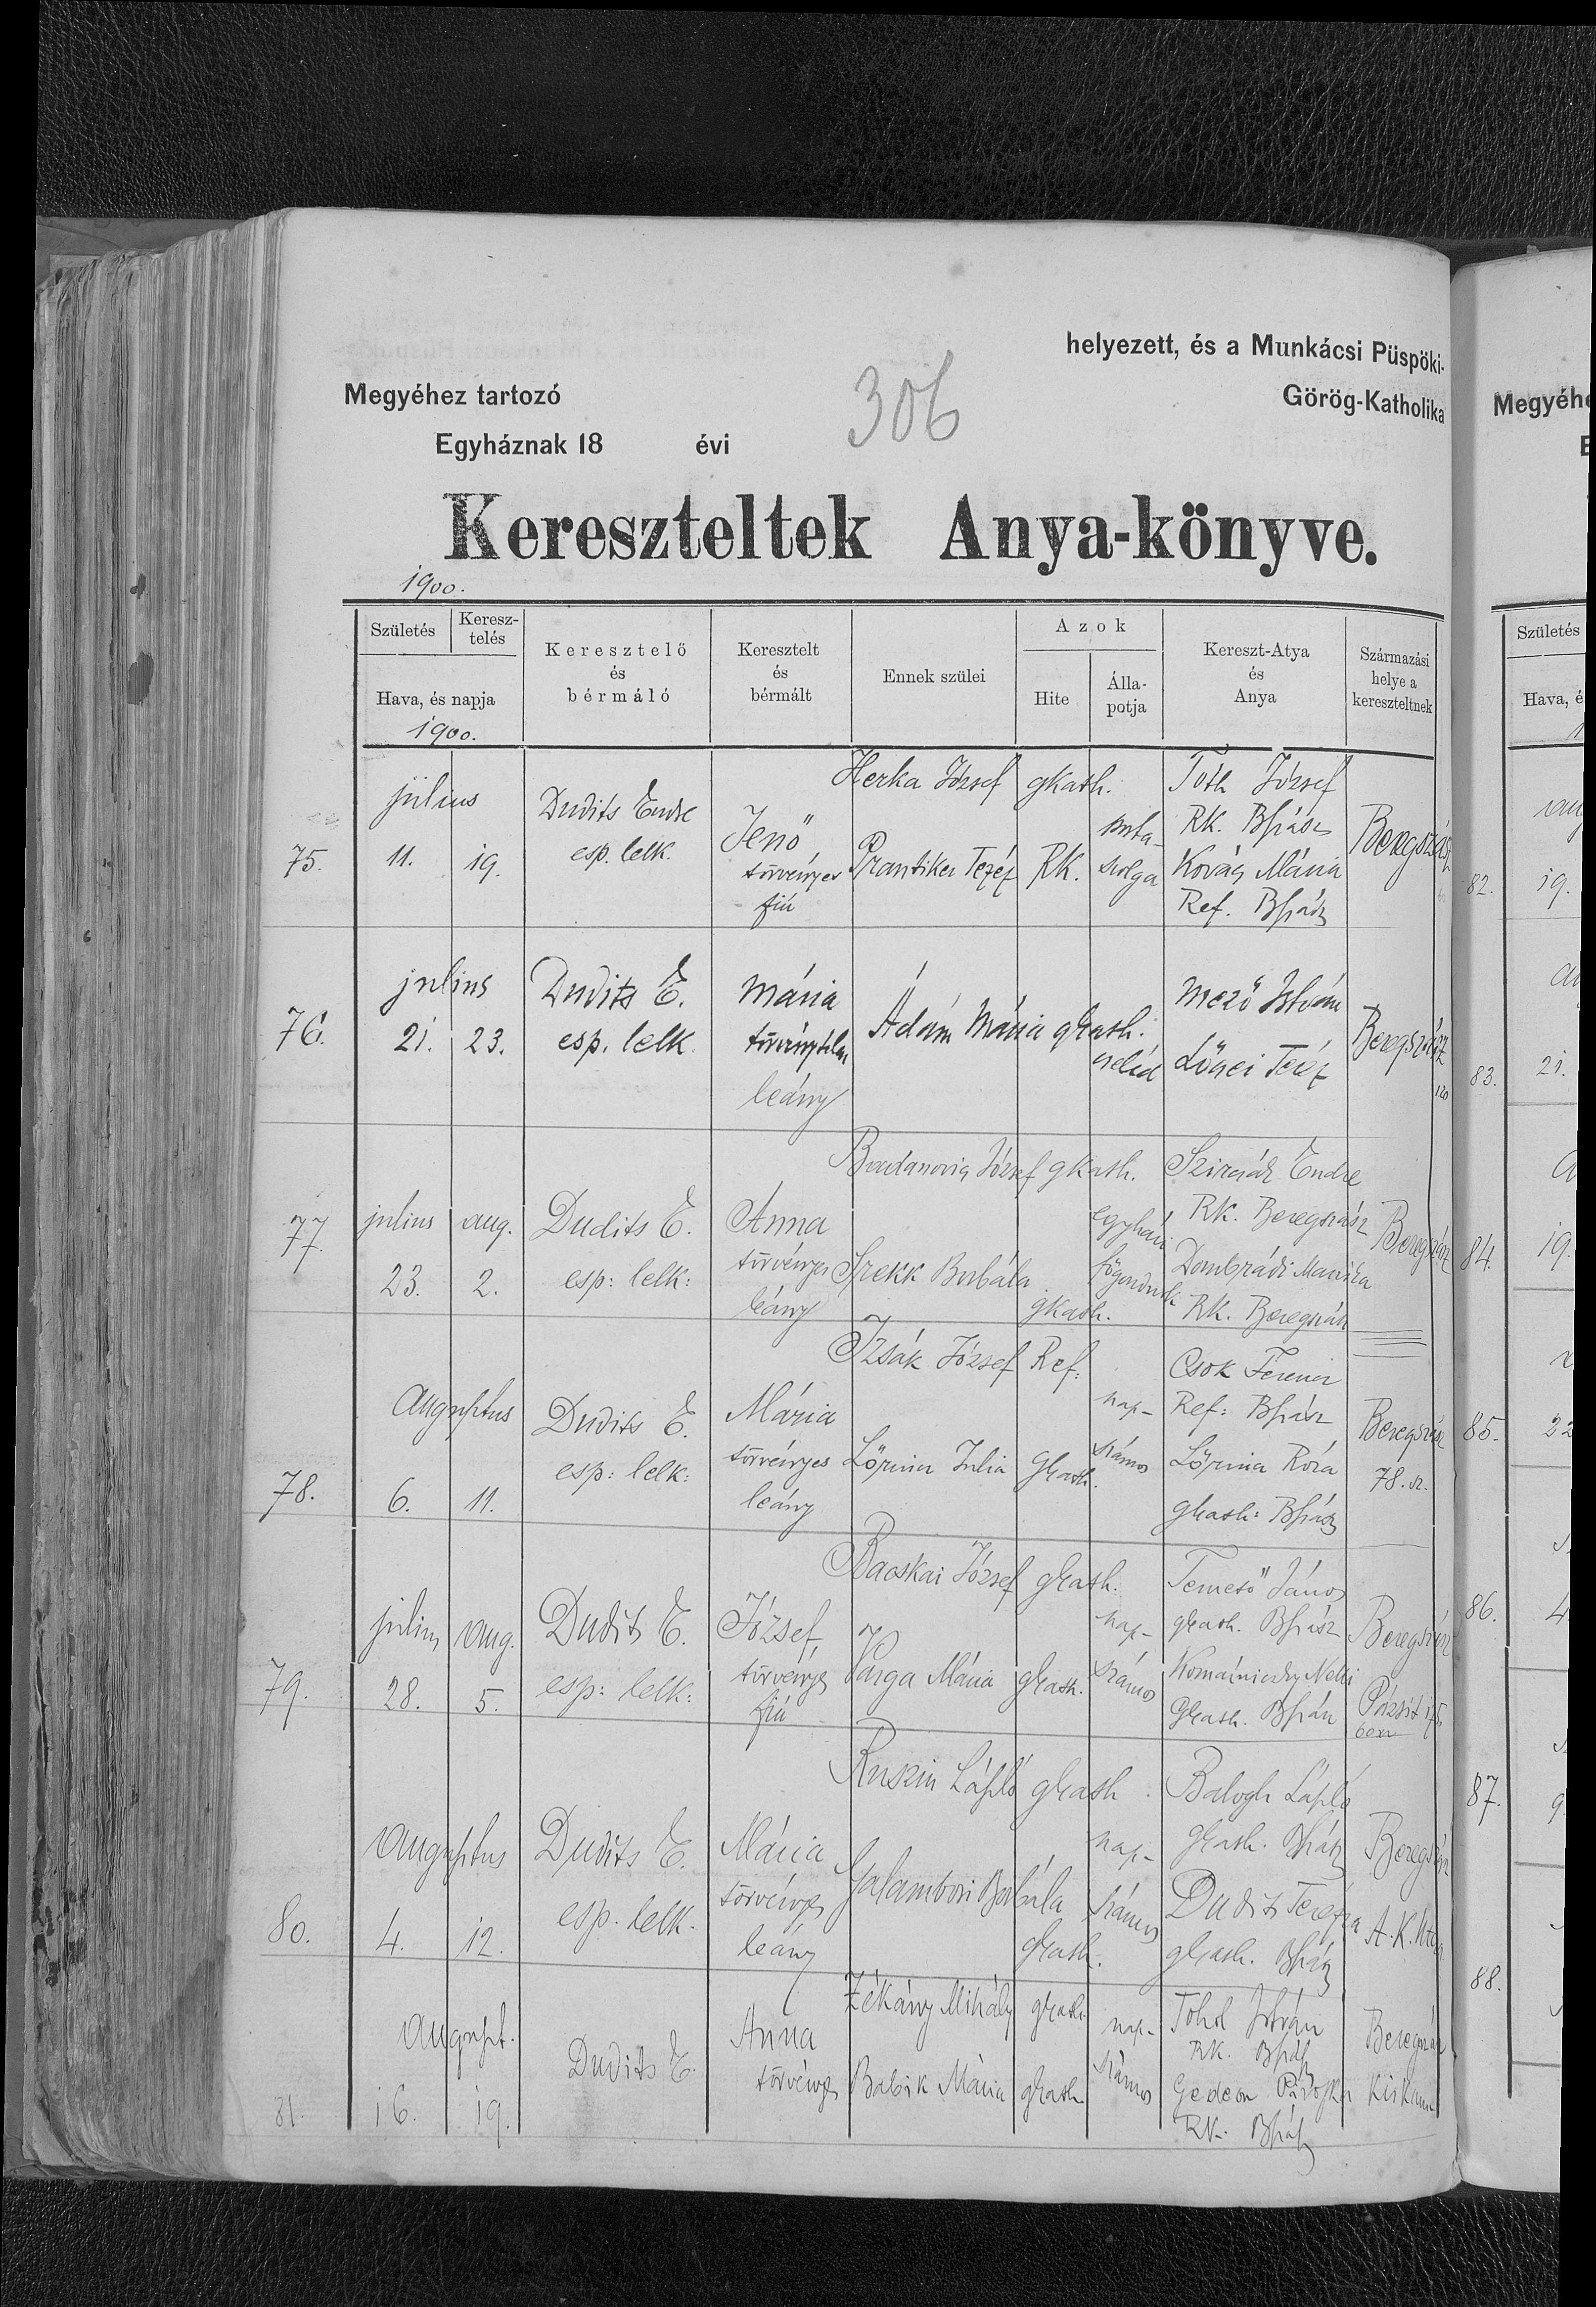 helyezett, és a Munkácsi Püspöki-
Megyéhez tartozó
306
Görög-Katholika
Egyháznak 18 évi
Kereszteltek Anya-könyve.
1900.
Születés
Keresz-
telés
Hava, és napja
1900.
Keresztelő
és
bérmáló
Keresztelt
és
bérmált
Ennek szülei
Azok
Hite
Álla-
potja
Kereszt-Atya
és
Anya
Származási
helye a
kereszteltnek
75.
július
11. 19.
Dudits Endre
esp. lelk.
Jenő
törvényes
fiú
Herka József gkath.
RK.
szolga
Tóth József
RK. Bszász
Mária
Ref. Bszász
Beregszász
76.
julius
21. 23.
Dudits E.
esp. lelk.
Mária
törvénytelen
leány
Ádám Mária gkath.
cseléd
Mező István
Teréz
Beregszász
120
77.
julius aug.
23. 2.
Dudits E.
esp: lelk:
Anna
törvényes
leány
József gkath.
Borbála
gkath.
Endre
RK. Beregszász
Dombrádi
RK. Beregszász
Beregszász
78.
Augusztus
6. 11.
Dudits E.
esp: lelk:
Mária
törvényes
leány
Izsák József Ref:
Lőrincz Julia Gkath.
nap-
számos
Csok Ferencz
Ref: Bszász
Lőrincz Róza
gkath: Bszász
Beregszász
78. sz.
79.
julius aug.
28. 5.
Dudits E.
esp: lelk:
József
törvényes
fiú
Bacskai József gkath.
Varga Mária gkath.
nap-
számos
János
gkath. Bszász
Gkath. Bszász
Beregszász
80.
Augusztus
4. 12.
Dudits E.
esp. lelk.
Mária
törvényes
leány
Ruszin László gkath.
Galambosi Borbála
Gkath.
nap-
számos
Balogh László
Gkath. Bszász
Dudits Terézia
gkath. Bszász
Beregszász
81.
Auguszt.
16. 19.
Dudits E.
Anna
törvényes
Zékány Mihály gkath.
Babik Mária gkath
nap-
számos
István
RK. Bszász
Gedeon Piroska
RK. Bszász
Beregszász
Megyéhe
Születés
Hava, é
82. 19.
83. 21.
84. 19.
85. 22
86. 4.
87. 9
88.